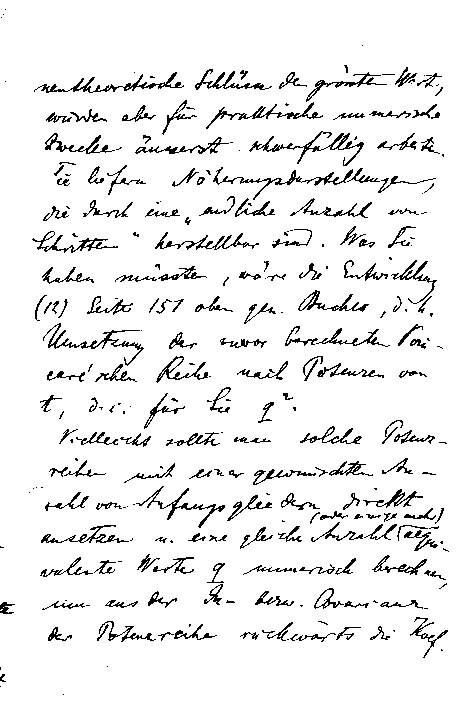 nentheoretische Schlüsse den grössten Wert,
würden aber für praktische numerische
Zwecke äusserst schwerfällig arbeiten.
Sie liefern Näherungsdarstellungen,
die durch eine „endliche Anzahl von
Schritten“ herstellbar sind. Was Sie
haben müssten, wäre die Entwicklung
(12) Seite 151 oben gen. Buches, d. h.
Umsetzung der zuvor berechneten Poin-
caré'schen Reihe nach Potenzen von
t, d. i. für Sie q².
Vielleicht sollte man solche Potenz-
reihen mit einer gewünschten An-
zahl von Anfangsgliedern direkt
ansetzen u. eine gleiche Anzahl (oder einige mehr) aequi-
valente Werte q numerisch berechnen,
um aus der In- bezw. Covarianz
der Potenzreihe rückwärts die Koef.